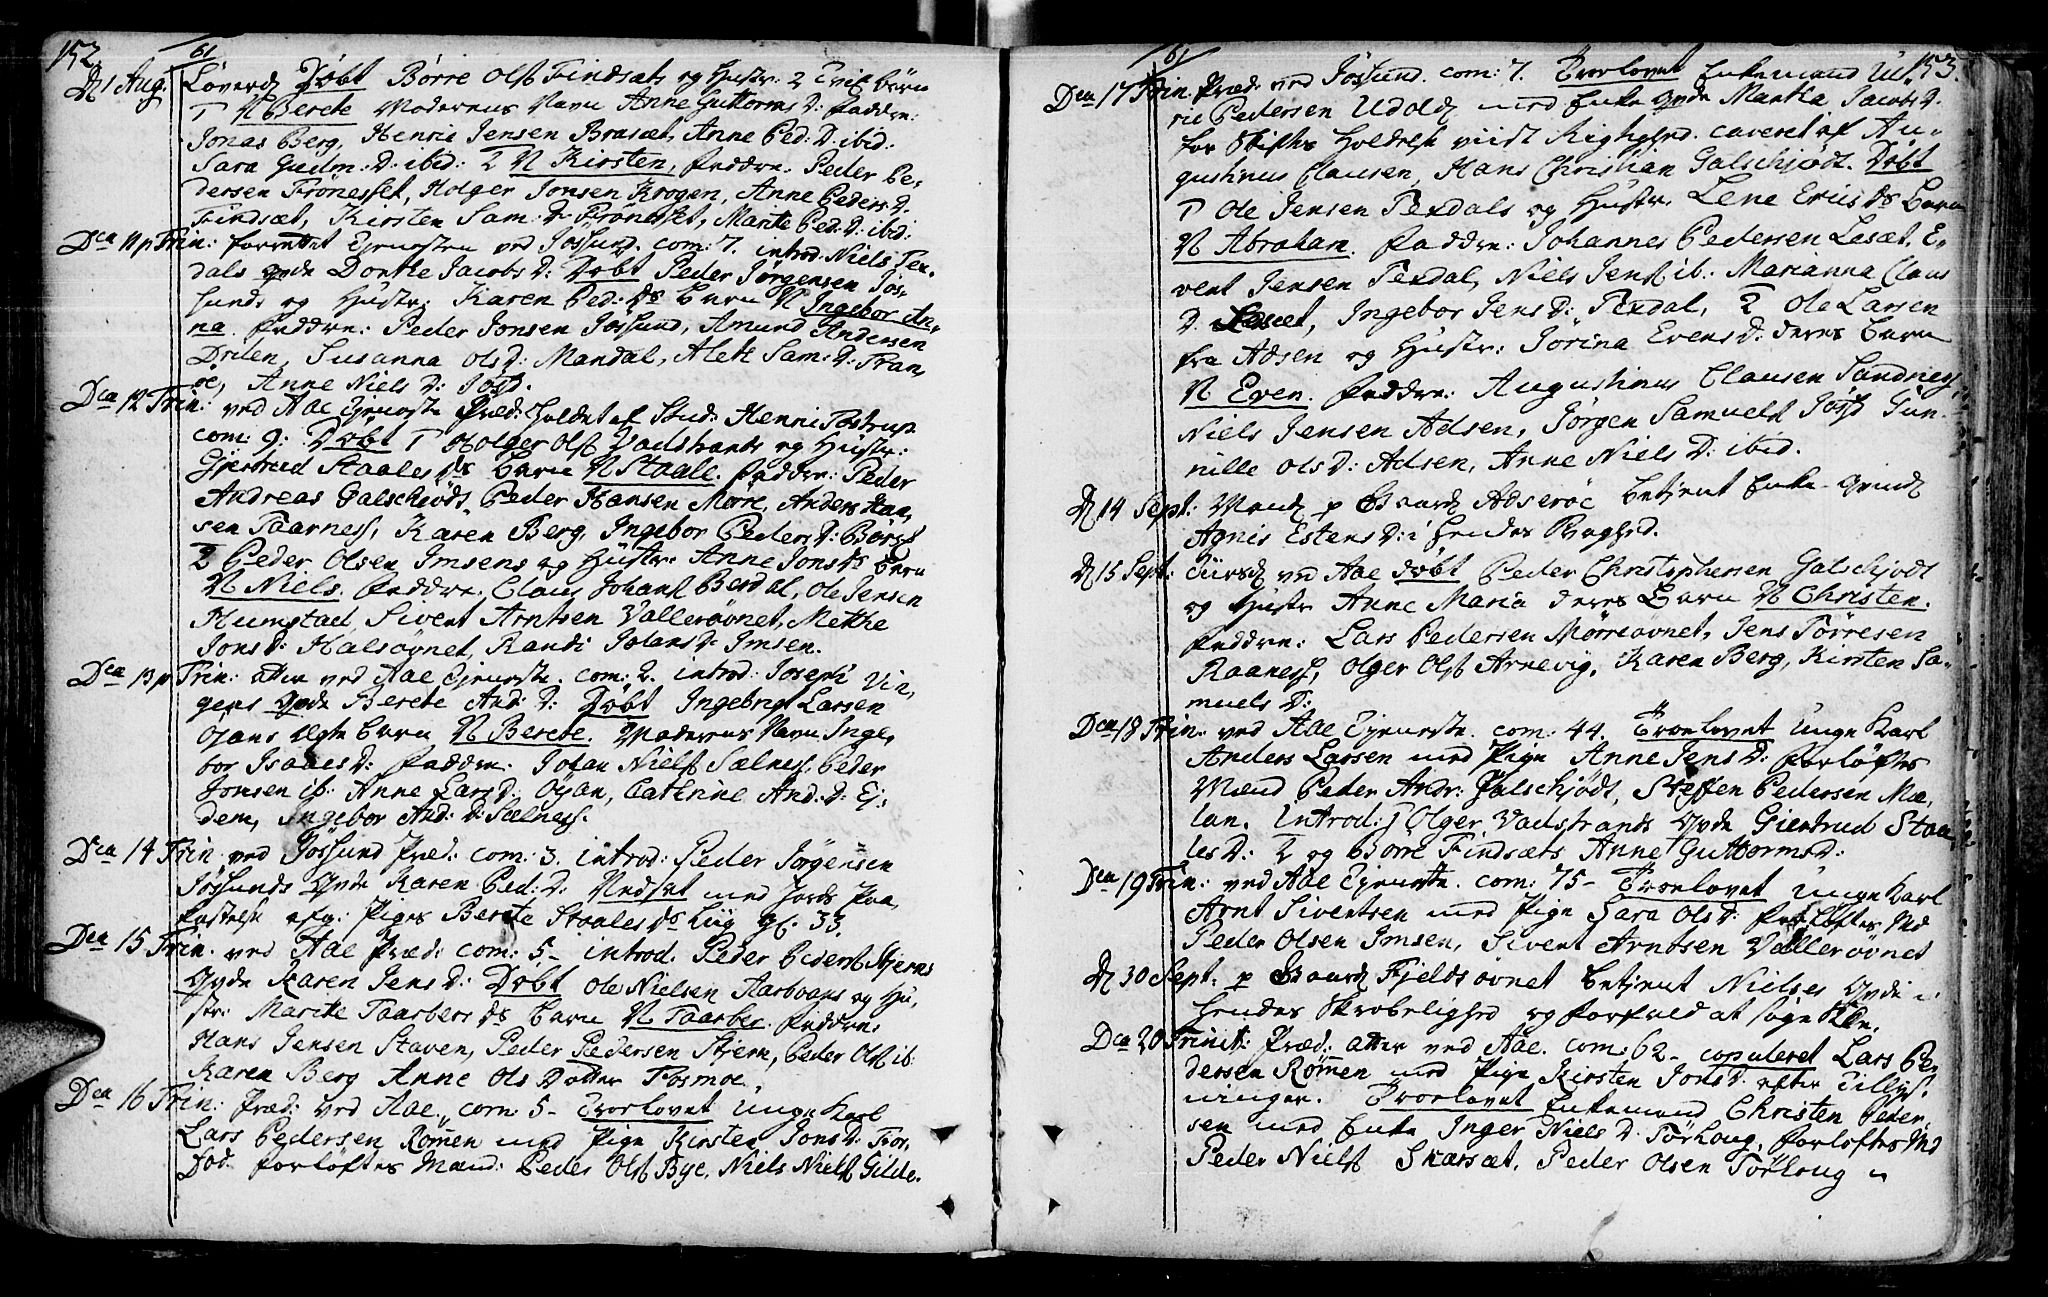 152.
61
D 1 Aug. Løverd Døbt Børre Ols Findsæts og Hustr: 2 Tvil. børn
1 N Berete Moderens Navn Anne Guttorms D: Faddre:
Jonas Berg, Henric Jensen Brasæt, Anne Ped: D: ibid:
Sara Gudm: D: ibid: 2 N Kirsten, Faddre: Peder Pe-
dersen Frönesset, Holger Jonsen Krogen, Anne Peders D.
Findsæt, Kirsten Sam: D: Frönesset, Marite Ped: D: ibid:
Dca 11 p Trin: forrettet Tjenesten ved Jøssund. com: 7. introd: Niels Tex-
dals qvde Dorthe Jacobs D: Døbt Peder Jørgensen Jøs-
sunds og Hustr: Karen Ped: Ds Barn N Ingebor An-
na. Faddre: Peder Jonsen Jössund, Amund Andersen
Drelen, Susanna Ols D: Mandal, Alet Sam: D: Tran-
öe, Anne Niels D: Jøss.
Dca 12 Trin: ved Aae Tjeneste Præd: Holdet af Stud: Henric Tostrup
com: 9: Døbt 1 Holger Ols Vadstrands og Hustr:
Gjertrud Staales Ds Barn N Staale. Faddre: Peder
Andreas Galschiödt, Peder Hansen Mörre, Anders Han-
sen Taarness, Karen Berg, Ingebor Peders D: Börgs
2 Peder Olsen Imsens og Hustr: Anne Jons Ds Barn
N Niels. Faddre: Claus Johans Berdal, Ole Jensen
Humstad, Sivert Arntsen Vallersövnet, Methe
Jons D: Halsövnet, Randi Johans D: Imsen.
Dca 13 p Trin: atter ved Aae Tjeneste. com: 2. introd: Joseph Vin-
gens qvde Berete And: D: Døbt Ingebrigt Larsen
Öjans Ægte barn N Berete. Moderens Navn Inge-
bor Isaacs D: Faddre: Johan Niels Sælness, Peder
Jonsen ib: Anne Lars D. Öyan, Cathrine And: D: Ej-
dem, Ingebor And: D: Sælness.
Dca 14 Trin ved Jössund Præd: com: 3. introd: Peder Jörgensen
Jössunds qvde Karen Ped: D: Nedsat med Jords Paa-
kastelse afg: Piges Berete Staales Ds Liig gl: 33
Dca 15 Trin: ved Aae Præd: com: 5- introd: Peder Peders Stjerns
qvde Karen Jens D: Döbt Ole Nielsen Aarboans og Hu-
str: Marite Taarbers Ds Barn N Taarber. Faddre:
Hans Jensen Staven, Peder Pedersen Stjern, Peder Ols ib:
Karen Berg Anne Ols Dotter Fosmoe.
Dca 16 Trin: Præd: ved Aae. com: 5- Trolovet Unge Karl
Lars Pedersen Römen med Pige Kirsten Jons D: Tør-
Dod. Forløftes Mænd: Peder Ols Bye, Niels Niels Gilde.
61
153.
Dca 17 Trin. Præd: ved Jössund. com: 7. Troelovet Enkemand Ul-
ric Pedersen Udold med Enke qvde Martha Jacobs D.
for Skiftes Holdelse viidt Righghed. caveret af Au-
gustinus Clausen, Hans Christian Galschjödt. Döbt
1 Ole Jensen Texdals og Hustr. Lene Erics Ds Barn
N Abraham. Faddre: Johannes Pedersen Lesæt, E-
vent Jensen Texdal, Niels Jens ib: Marianna Claus
D. Lesæt, Ingebor Jens D: Texdal, 2 Ole Larsen
fra Adsen og Hustr: Jörina Evens D: deres Barn
N Even. Faddre: Augustinus Clausen Sandness,
Niels Jensen Adsen, Jörgen Samuels Jöss Gun-
nille Ols D: Adsen, Anne Niels D: ibid.
D 14 Sept: Mand p Gaard Adseröe betjent Enke qvind
Agnis Estens D: i Hendes Svaghed.
D 15 Sept: Tiirsd ved Aae döbt Peder Christophersen Galschjodt
og Hustr Anne Maria deres Barn N Christen.
Faddre: Lars Pedersen Mörreövnet, Jens Törresen
Raaness, Olger Ols Arnevig, Karen Berg, Kirsten Sa-
muels D:
Dca 18 Trin. ved Aae Tjeneste. com: 44. Troelovet Unge Karl
Anders Larsen med Pige Anne Jens D: Forløftes
Mænd Peder Andr: Galschjödt, Steffen Pedersen Mæ-
lan. Introd: 1 Olger Vadstrands qvde Giertrud Staa-
les D: 2 og Börre Findsæts Anne Guttorms D:
Dca 19 Trin: ved Aae Tjeneste. com: 75- Troelovet Unge Karl
Arnt Siventsen med Pige Sara Ols D: Forløftes Md
Peder Olsen Imsen, Sivert Arntsen Vallersövnet
D 30 Sept. p Gaard Fjeldsövnet betjent Nielses qvde i
Hendes Skrøbelighed og forfald at søge Kken.
Dca 20 Trinit: Præd: atter ved Aae. com: 62- copuleret Lars Pe-
dersen Römen med Pige Kirsten Jons D. efter Tillys-
ninger. Troelovet Enkemand Christen Peder-
sen med Enke Inger Niels D. Törhoug, Forløftes Md
Peder Niels Skarsæt, Peder Olsen Törhoug